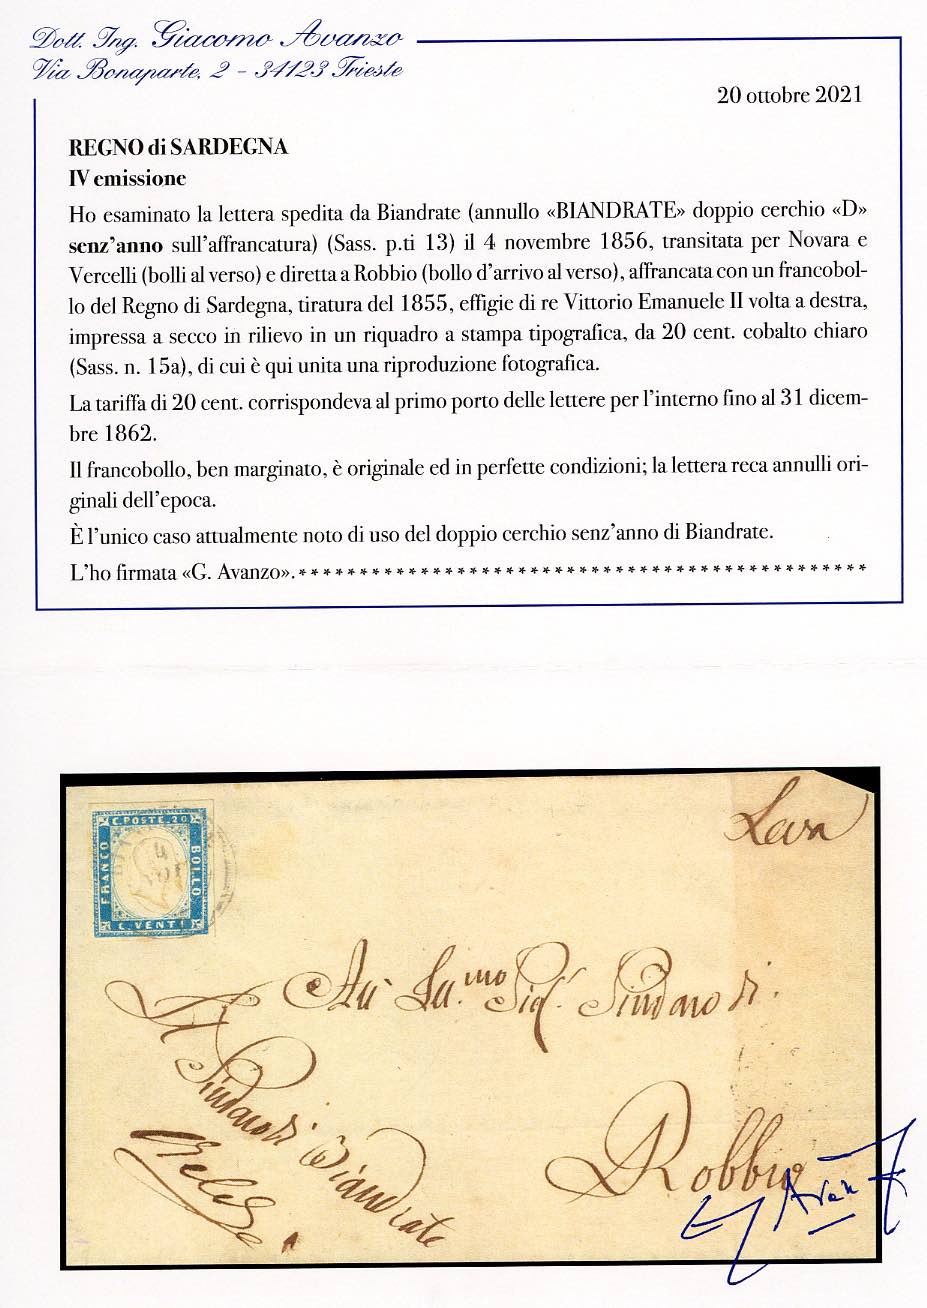 Dott. Ing. Giacomo Avanzo
Via Bonaparte, 2 - 34123 Trieste
20 ottobre 2021
REGNO di SARDEGNA
IV emissione
Ho esaminato la lettera spedita da Biandrate (annullo «BIANDRATE» doppio cerchio «D»
senz'anno sull'affrancatura) (Sass. p.ti 13) il 4 novembre 1856, transitata per Novara e
Vercelli (bolli al verso) e diretta a Robbio (bollo d'arrivo al verso), affrancata con un francobol-
lo del Regno di Sardegna, tiratura del 1855, effigie di re Vittorio Emanuele II volta a destra,
impressa a secco in rilievo in un riquadro a stampa tipografica, da 20 cent. cobalto chiaro
(Sass. n. 15a), di cui è qui unita una riproduzione fotografica.
La tariffa di 20 cent. corrispondeva al primo porto delle lettere per l'interno fino al 31 dicem-
bre 1862.
Il francobollo, ben marginato, è originale ed in perfette condizioni; la lettera reca annulli ori-
ginali dell'epoca.
È l'unico caso attualmente noto di uso del doppio cerchio senz'anno di Biandrate.
L'ho firmata «G. Avanzo».***********************************************
C. POSTE. 20
FRANCO
BOLLO
C. VENTI
4
Sig. Sindaco di
Robbio
Il
Sindaco di Biandrate